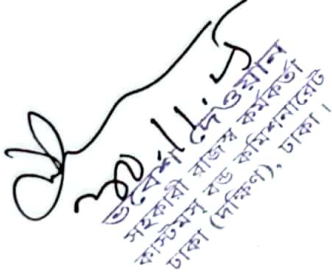 ভবেশ দেওয়ান
সহকারী রাজস্ব কর্মকর্তা
কাস্টমস্ বন্ড কমিশনারেট
ঢাকা (দক্ষিণ), ঢাকা।